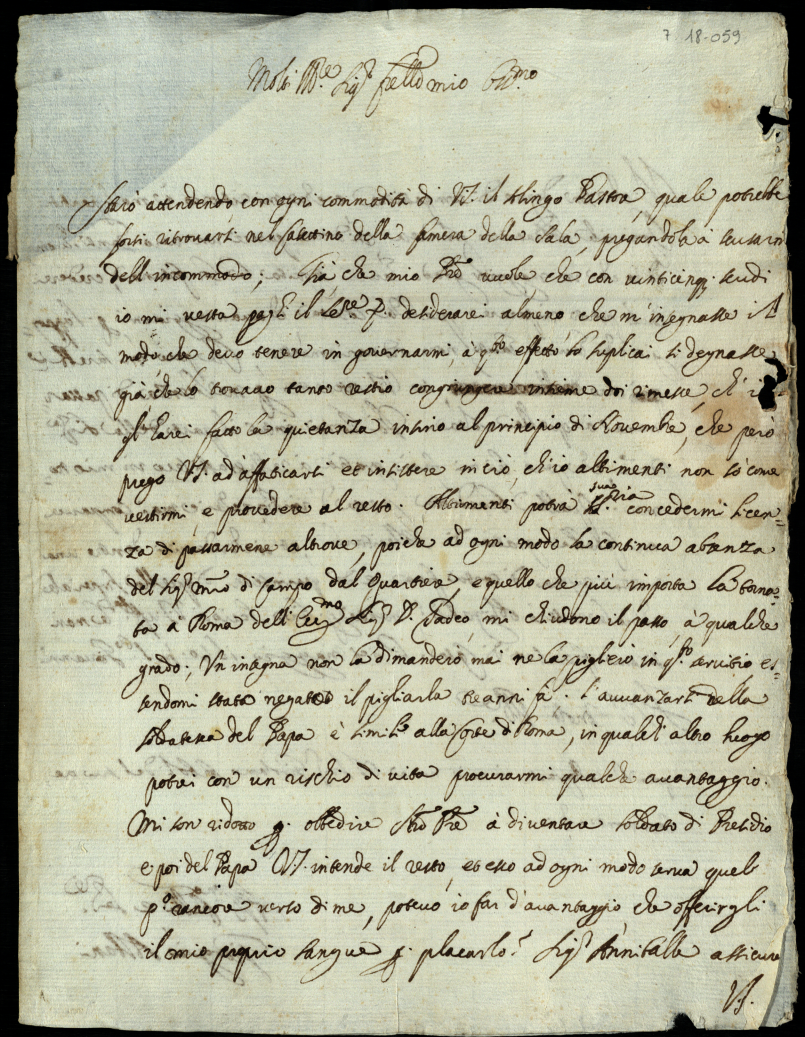 7 18-059
Molt' Ill.re Sig.r fr̃ello mio Oss.mo
Starò attendendo con ogni commodità di V.S. il Pastra, quale potrebbe
forsi ritrovarsi nel salottino della camera della sala, pregandola à scusarsi
dell'incommodo; Già che mio Pr̃e vuole, che con vinticinq. scudi
io mi vesta desiderarei almeno che m'insegnasse il
modo che devo tenere in governarmi, à q.to effetto lo suplicai si degnasse
già che lo trovavo tanto restio congiungere insieme doi rimesse, ch'io
gl'harei fatto la quietanza insino al principio di Novembre, che però
prego V.S. ad affaticarsi et insistere in ciò, ch'io altrimenti non sò come
vestirmi, e provedere al resto. Altrimenti potrà sua S.ria concedermi licen-
za di passarmene altrove, poiche ad ogni modo la continua absenza
del Sig.r M͞ro di Campo dal Quartiere, e quello che più importa la torna-
ta a Roma dell'Ecc.mo Sig.r D. Tadeo, mi chiudono il passo à qualche
grado; Un insegna non la dimanderò mai ne la piglierò in q.sto servitio es-
sendomi stato negato il pigliarla tre anni fà. L'avvanzarsi nella
soldatesca del Papa è simile alla Corte di Roma, in qualch'altro luogo
potrei con un rischio di vita procurarmi qualche avantaggio.
Mi son ridotto p. obbedire Pr̃e à diventare soldato di Presidio
e poi del Papa V.S. intende il resto, et esso ad ogni modo serva quel
p.o rancore verso di me, potevo io far d'avantaggio che offerirgli
il mio proprio sangue p. placarlo? Sig.r Anniballe assicuro
V.S.